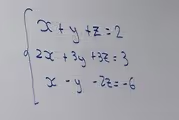 x + y + z = 2
2x + 3y + 3z = 3
x - y - 2z = -6